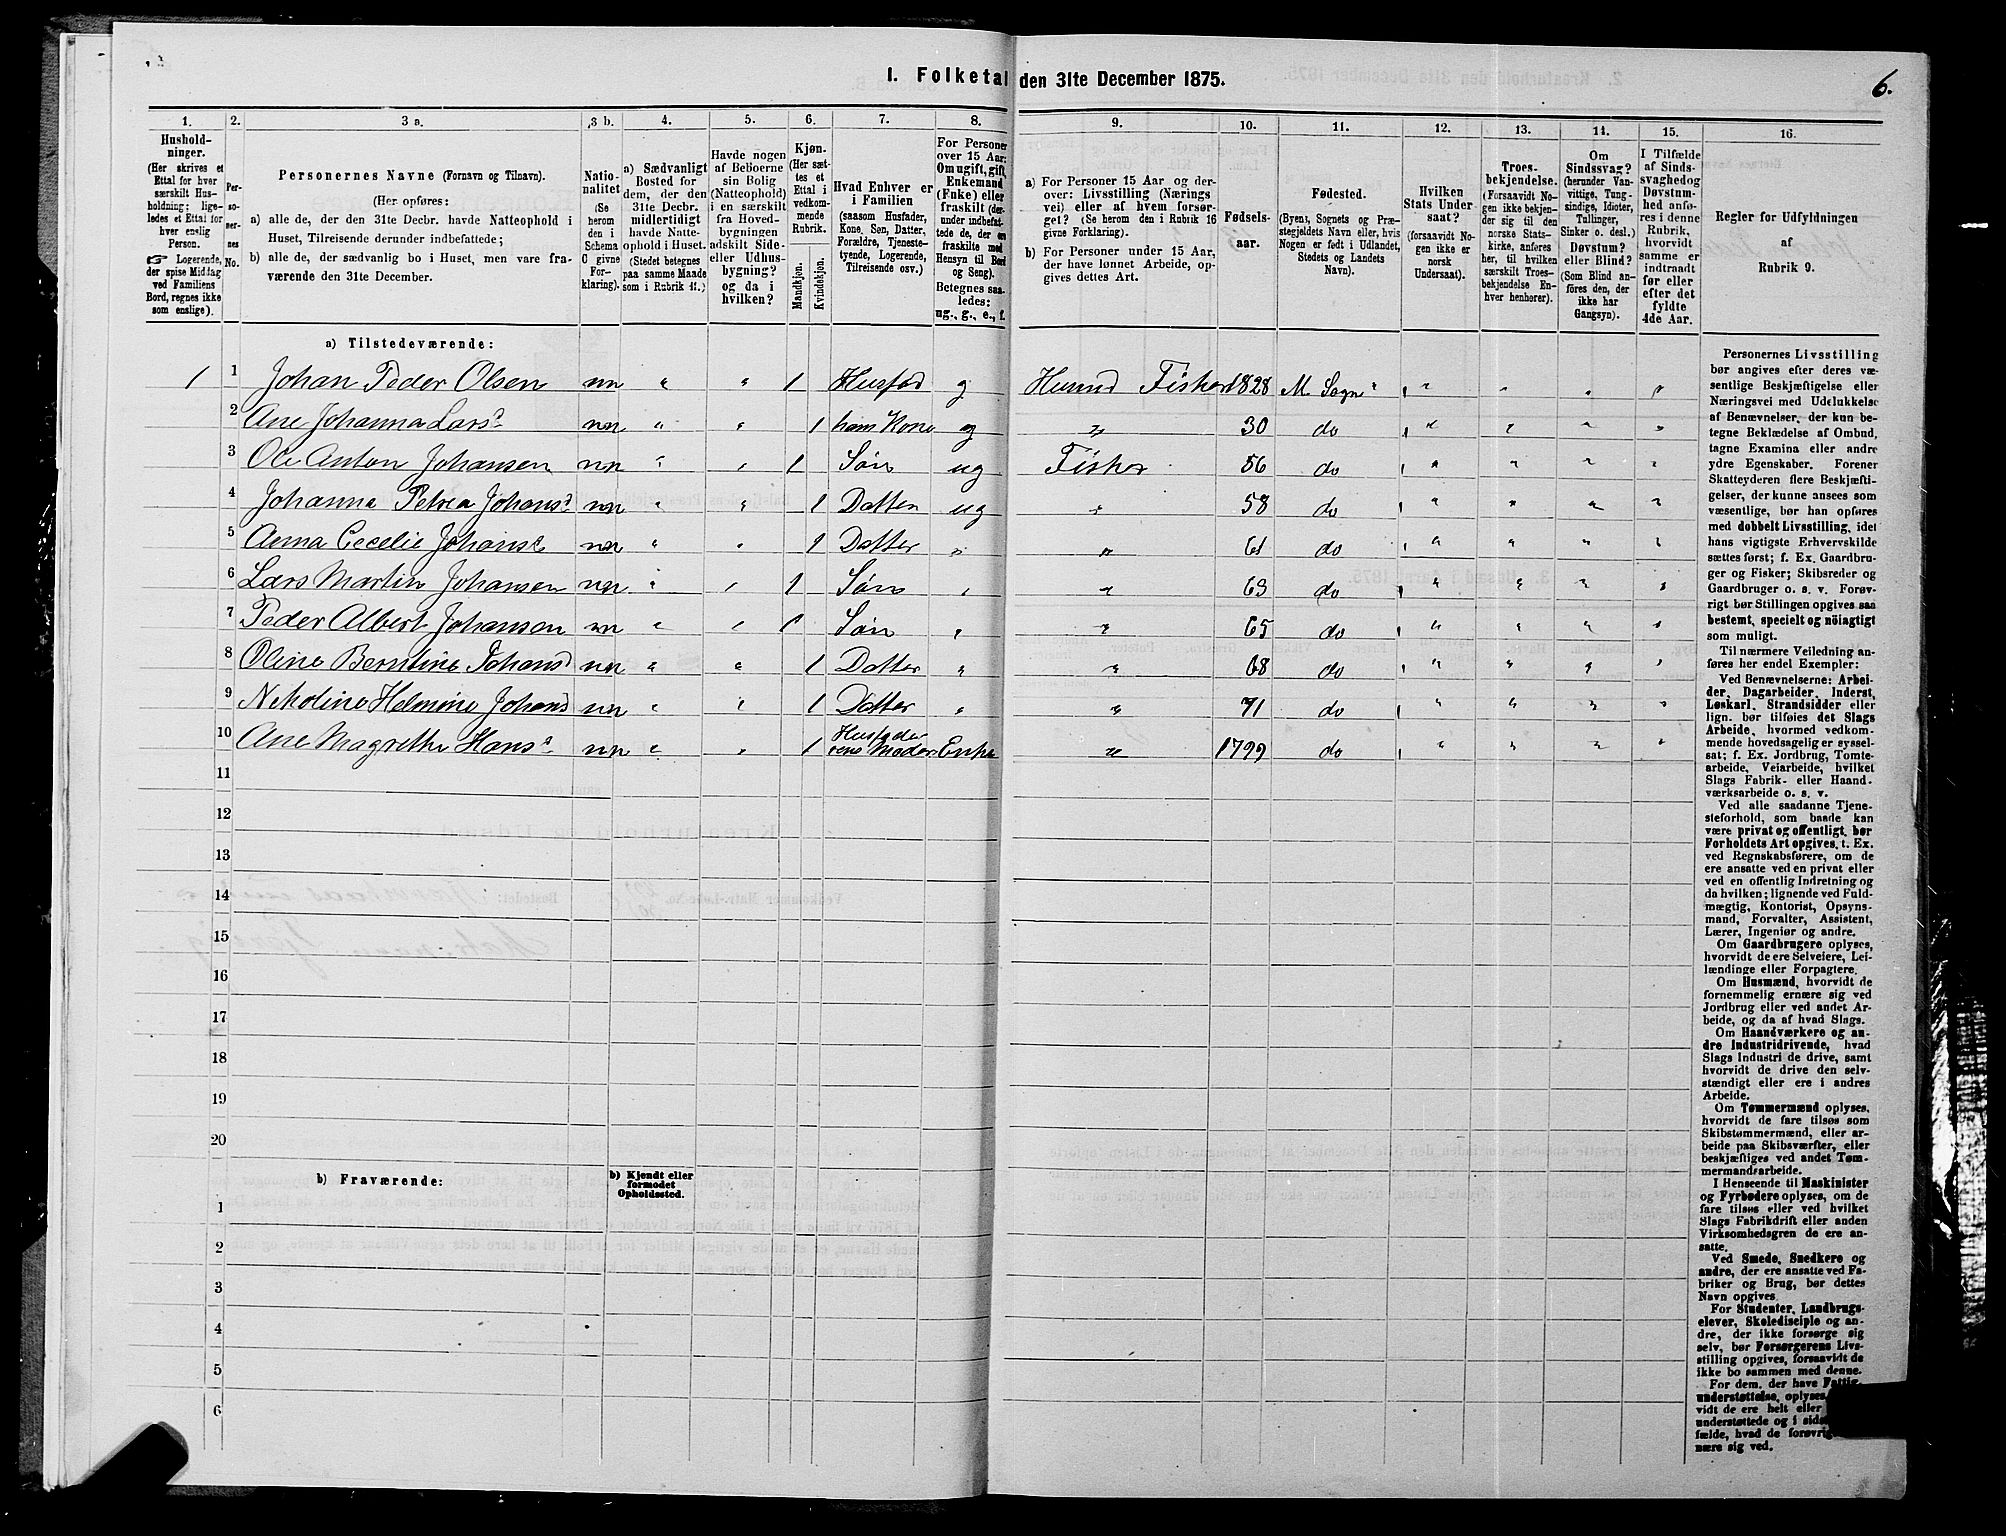 6.
I. Folketal den 31te December 1875.
1. 2. 3 a. 3 b. 4. 5. 6. 7. 8. 9. 10. 11. 12. 13. 14. 15. 16.
Hushold-
ninger.
(Her skrives et
Ettal for hver
særskilt Hus-
holdning; lige-
ledes et Ettal for
hver enslig
Person.
☞ Logerende,
der spise Middag
ved Familiens
Bord, regnes ikke
som enslige).
Per-
so-
ner-
nes
No.
Personernes Navne (Fornavn og Tilnavn).
(Her opføres:
a) alle de, der den 31te Decbr. havde Natteophold i
Huset, Tilreisende derunder indbefattede;
b) alle de, der sædvanlig bo i Huset, men vare fra-
værende den 31te December.
Natio-
nalitet
(Se
herom
den i
Schema
C givne
For-
klaring).
a) Sædvanligt
Bosted for
dem, der den
31te Decbr.
midlertidigt
havde Natte-
ophold i Huset.
(Stedet betegnes
paa samme Maade
som i Rubrik 11.)
Havde nogen
af Beboerne
sin Bolig
(Natteophold)
i en særskilt
fra Hoved-
bygningen
adskilt Side-
eller Udhus-
bygning?
og da i
hvilken?
Kjøn.
(Her sæt-
tes et
Ettal i
vedkom-
mende
Rubrik.
Mandkjøn.
Kvindekjøn.
Hvad Enhver er
i Familien
(saasom Husfader,
Kone, Søn, Datter,
Forældre, Tjeneste-
tyende, Logerende,
Tilreisende osv.)
For Personer
over 15 Aar:
Om ugift, gift,
Enkemand
(Enke) eller
fraskilt (der-
under indbefat-
tede de, der ere
fraskilte med
Hensyn til Bord
og Seng).
Betegnes saa-
ledes:
ug., g., e., f.
a) For Personer 15 Aar og der-
over: Livsstilling (Nærings
vei) eller af hvem forsør-
get? (Se herom den i Rubrik 16
givne Forklaring).
b) For Personer under 15 Aar,
der have lønnet Arbeide, op-
gives dettes Art.
Fødsels-
aar.
Fødested.
(Byens, Sognets og Præ-
stegjeldets Navn eller, hvis
Nogen er født i Udlandet,
Stedets og Landets
Navn).
Hvilken
Stats Under-
saat?
(forsaavidt No-
gen ikke er
norsk
Undersaat).
Troes-
bekjendelse.
(Forsaavidt No-
gen ikke bekjen-
der sig til den
norske Stats-
kirke, anføres
her, til hvilken
særskilt Troes-
bekjendelse En-
hver henhører).
Om
Sindssvag?
(herunder Van-
vittige, Tung-
sindige, Idioter,
Tullinger,
Sinker o. desl.).
Døvstum?
eller Blind?
(Som Blind an-
føres den, der
ikke har
Gangsyn).
I Tilfælde
af Sinds-
svaghed og
Døvstum-
hed anfø-
res i denne
Rubrik,
hvorvidt
samme er
indtraadt
før eller
efter det
fyldte
4de Aar.
Regler for Udfyldningen
af
Rubrik 9.
a) Tilstedeværende:
1 1 Johan Peder Olsen nn " " 1 Husfad g Husmd Fisker 1828 M. Sogn " " " " "
2 Ane Johanna Larsd nn " " 1 hans Kone g " 30 do " " " "
3 Ole Anton Johansen nn " " 1 Søn ug Fisker 56 do " " " "
4 Johanna Petrea Johansd nn " " 1 Datter ug " 58 do " " " "
5 Anna Cecelie Johansd nn " " 1 Datter " " 61 do " " " "
6 Lars Martin Johansen nn " " 1 Søn " " 63 do " " " "
7 Peder Albert Johansen nn " " 1 Søn " " 65 do " " " "
8 Oline Berntine Johansd nn " " 1 Datter " " 68 do " " " "
9 Nikoline Helmine Johansd nn " " 1 Datter " " 71 do " " " "
10 Ane Magrethe Hansd nn " " 1 Husfade
rens Moder Enke " 1799 do " " " "
11
12
13
14
15
16
17
18
19
20
b) Fraværende:
b) Kjendt eller
formodet
Opholdssted.
1
2
3
4
5
6
Personernes Livsstilling
bør angives efter deres væ-
sentlige Beskjæftigelse eller
Næringsvei med Udelukkelse
af Benævnelser, der kun be-
tegne Beklædelse af Ombud,
tagne Examina eller andre
ydre Egenskaber. Forener
Skatteyderen flere Beskjæfti-
gelser, der kunne ansees som
væsentlige, bør han opføres
med dobbelt Livsstilling, idet
hans vigtigste Erhvervskilde
sættes først; f. Ex. Gaardbru-
ger og Fisker; Skibsreder og
Gaardbruger o. s. v. Forøv-
rigt bør Stillingen opgives saa
bestemt, specielt og nöiagtigt
som muligt.
Til nærmere Veiledning an-
føres her endel Exempler:
Ved Benævnelserne: Arbei-
der, Dagarbeider, Inderst,
Løskarl, Strandsidder eller
lign. bør tilføies det Slags
Arbeide, hvormed vedkom-
mende hovedsagelig er syssel-
sat; f. Ex. Jordbrug, Tomte-
arbeide, Veiarbeide, hvilket
Slags Fabrik- eller Haand-
værksarbeide o. s. v.
Ved alle saadanne Tjene-
steforhold, som baade kan
være privat og offentligt, bør
Forholdets Art opgives, t. Ex.
ved Regnskabsførere, om de
ere ansatte ved en privat eller
ved en offentlig Indretning og
da hvilken; lignende ved Fuld-
mægtig, Kontorist, Opsyns-
mand, Forvalter, Assistent,
Lærer, Ingeniør og andre.
Om Gaardbrugere oplyses,
hvorvidt de ere Selveiere, Lei-
lændinge eller Forpagtere.
Om Husmænd, hvorvidt de
fornemmelig ernære sig ved
Jordbrug eller ved andet Ar-
beide, og da af hvad Slags.
Om Haandværkere og an-
dre Industridrivende, hvad
Slags Industri de drive, samt
hvorvidt de drive den selv-
stændigt eller ere i andres
Arbeide.
Om Tømmermænd oplyses,
hvorvidt de fare tilsøs som
Skibstømmermænd, eller ar-
beide paa Skibsværfter, eller
beskjæftiges ved andet Tøm-
mermandsarbeide.
I Henseende til Maskinister
og Fyrbødere oplyses, om de
fare tilsøs eller ved hvilket
Slags Fabrikdrift eller anden
Virksomhedsgren de ere an-
satte.
Ved Smede, Snedkere og
andre, der ere ansatte ved Fa-
briker og Brug, bør dettes
Navn opgives.
For Studenter, Landbrugs-
elever, Skoledisciple og an-
dre, der ikke forsørge sig
selv, bør Forsørgerens Livs-
stilling opgives, forsaavidt de
ikke bo sammen med denne.
For dem, der have Fattig-
understøttelse, oplyses,
vidt de ere helt eller
understøttede og i sids
fælde, hvad de forøvrig
nære sig ved.